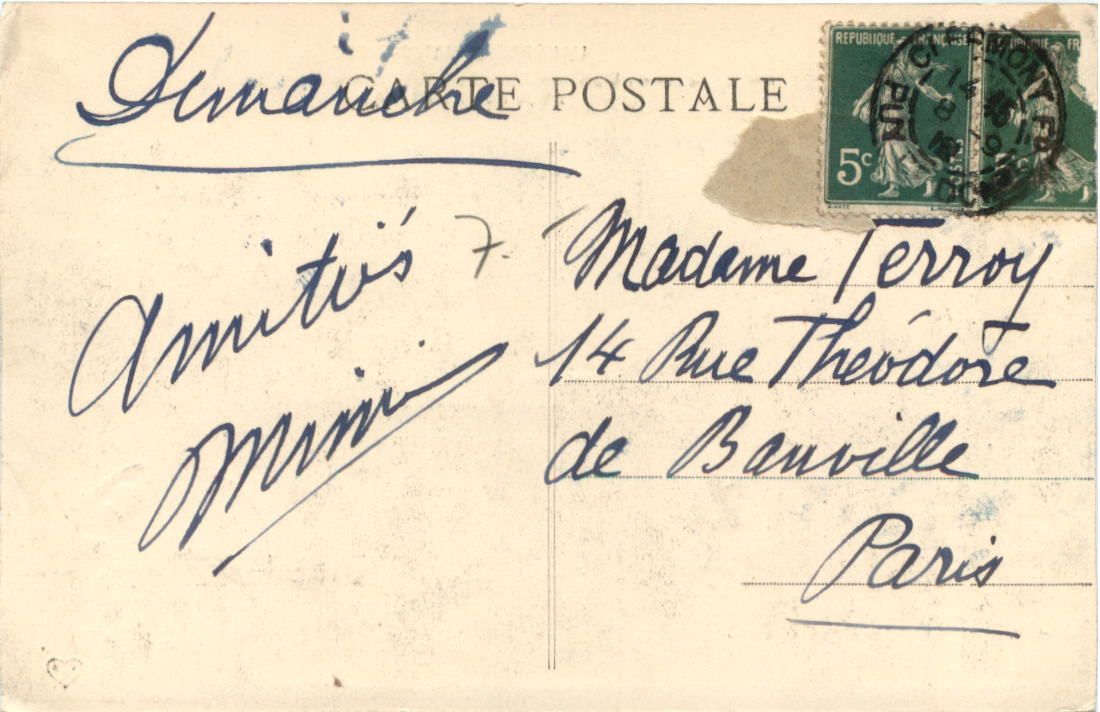 CARTE POSTALE
Dimanche
REPUBLIQUE FRANÇAISE
5c
POSTES
REPUBLIQUE FR
5c
CLERMONT FD
PUY DE DOME
Amitiés
7.
Mimi
Madame Terroy
14 Rue Théodore
de Banville
Paris